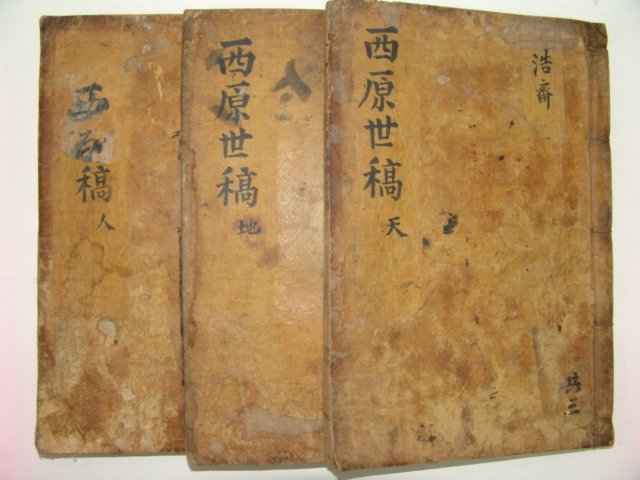 西原世稿 天
浩齋
共三
西原世稿 地
稿 人